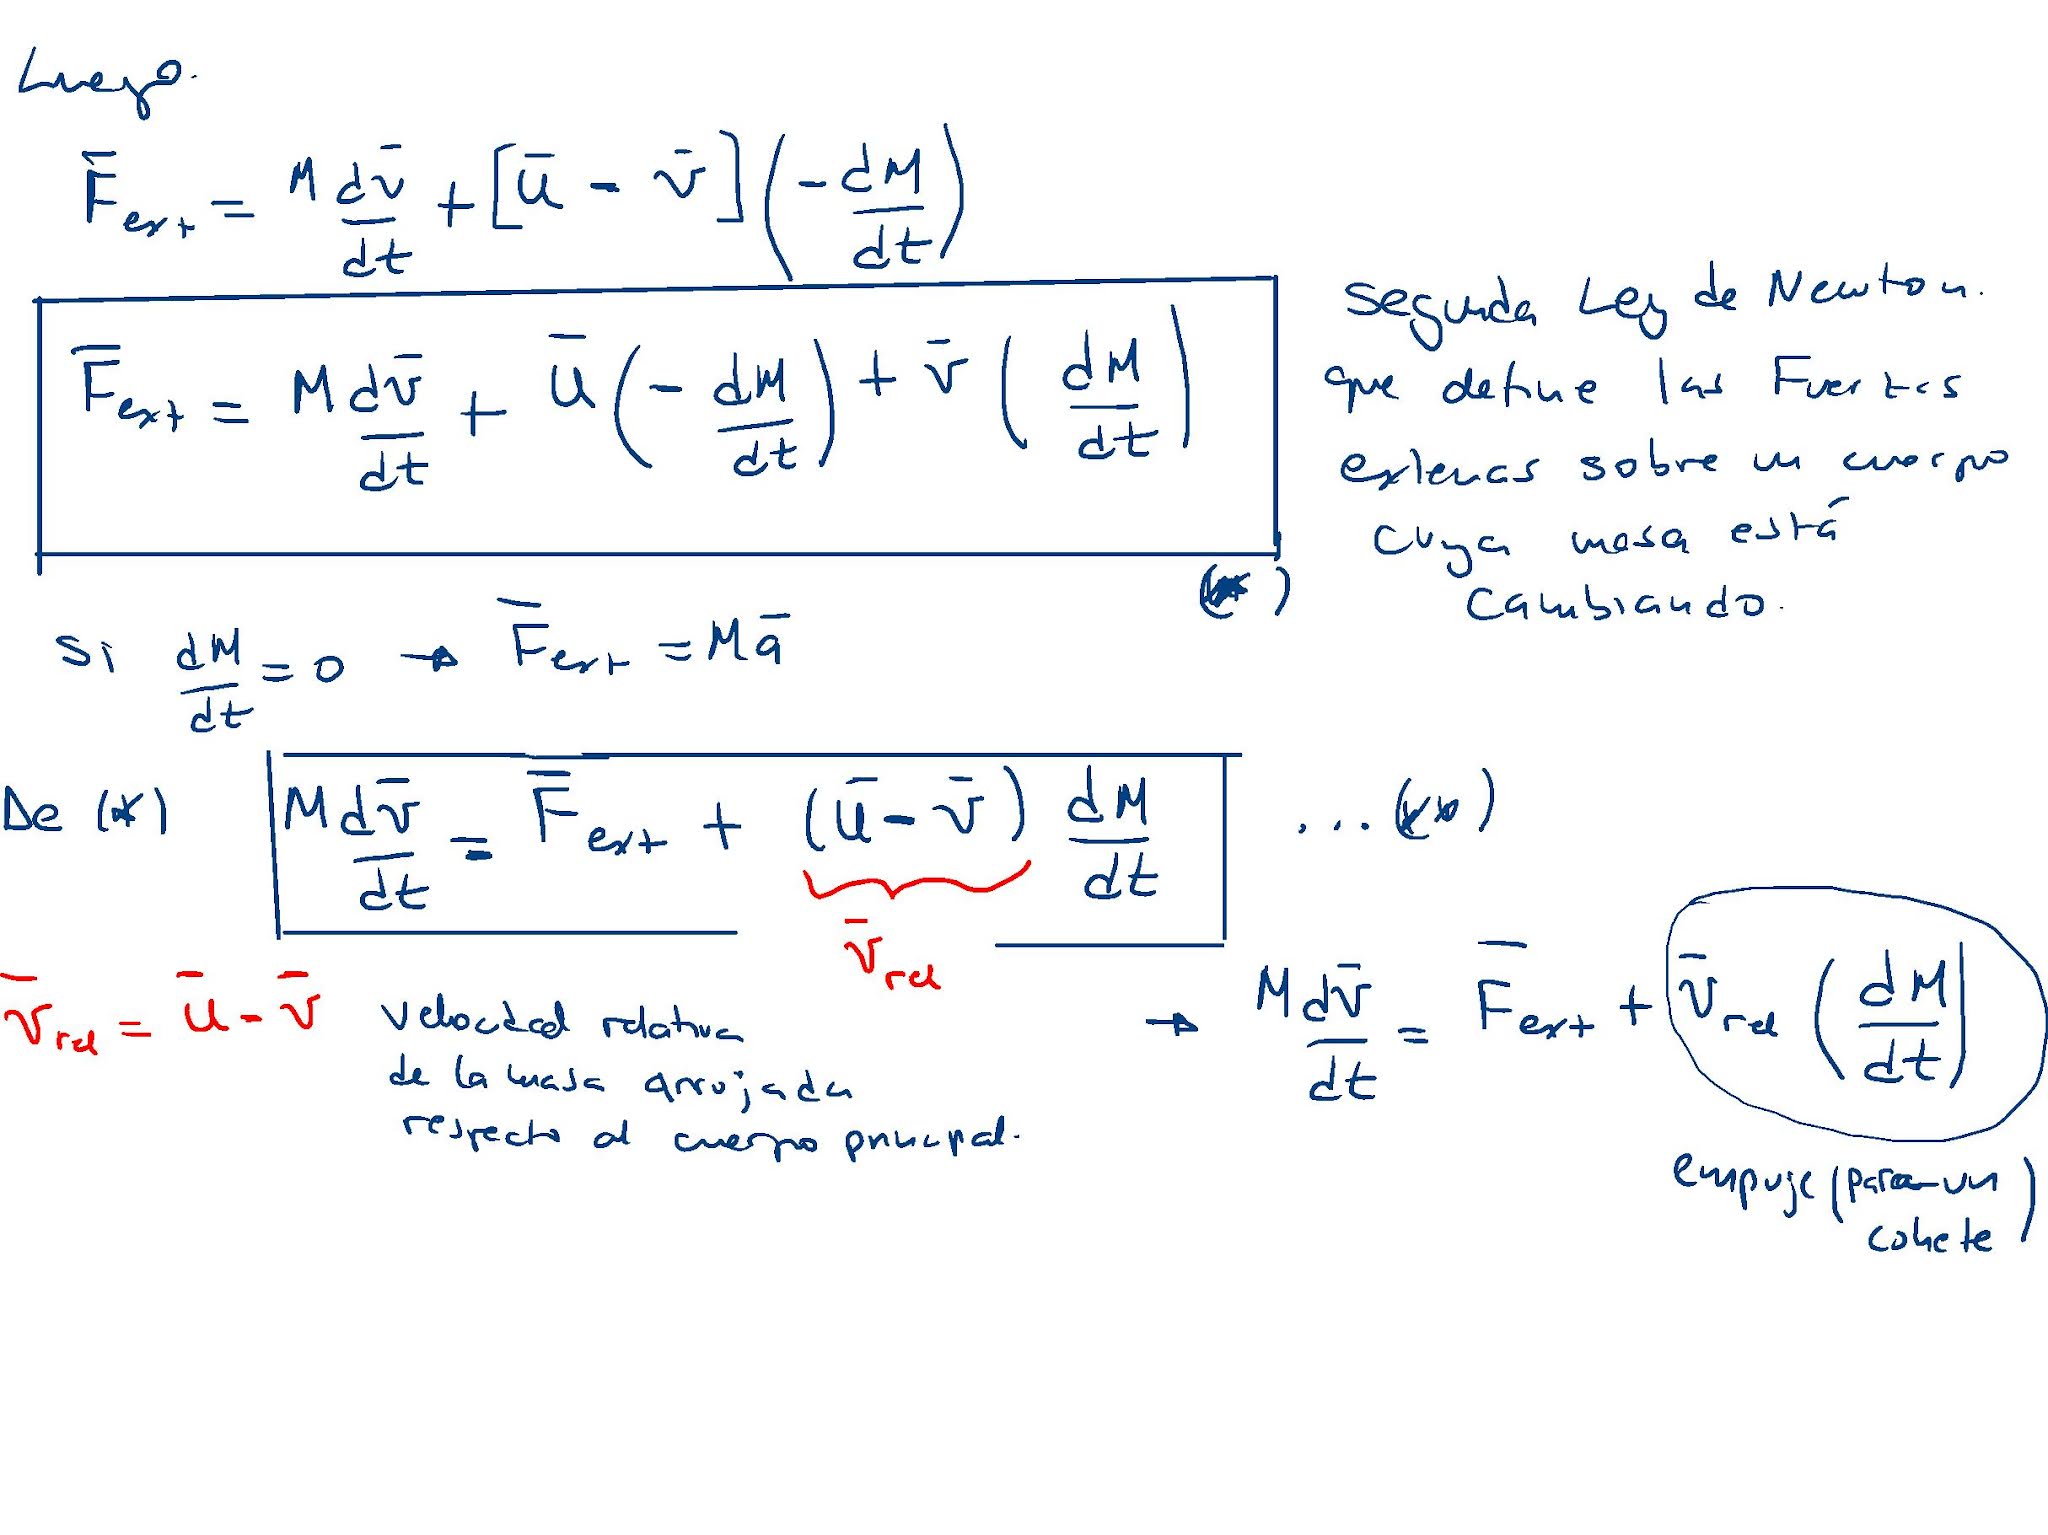 Luego.
F̄ext = M dv̄/dt + [ū - v̄] (-dM/dt)
F̄ext = M dv̄/dt + ū (-dM/dt) + v̄ (dM/dt)
(*)
Segunda Ley de Newton.
que define las Fuerzas
externas sobre un cuerpo
cuya masa está
cambiando.
Si dM/dt = 0 → F̄ext = Mā
De (*) M dv̄/dt = F̄ext + (ū - v̄) dM/dt ... (**)
v̄rel
v̄rel = ū - v̄
velocidad relativa
de la masa arrojada
respecto al cuerpo principal.
→ M dv̄/dt = F̄ext + v̄rel (dM/dt)
empuje (para un
cohete)